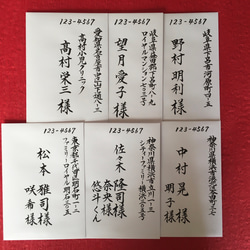 123-4567
岐阜県岐阜市河原町七の五
野村明利様
123-4567
岐阜県
ロイヤルマンション
望月愛子様
123-4567
愛知県名古屋市中山手通八ー三
高村小児クリニック
高村栄三様
123-4567
神奈川県横浜市
中村晃様
明子様
123-4567
神奈川県横浜市立川一ー三
横浜三〇三
佐々木隆司様
奈央様
悠斗くん
123-4567
東京都千代田区明石町一ー三
ファミリーロイヤル明石
松本雅司様
咲希様